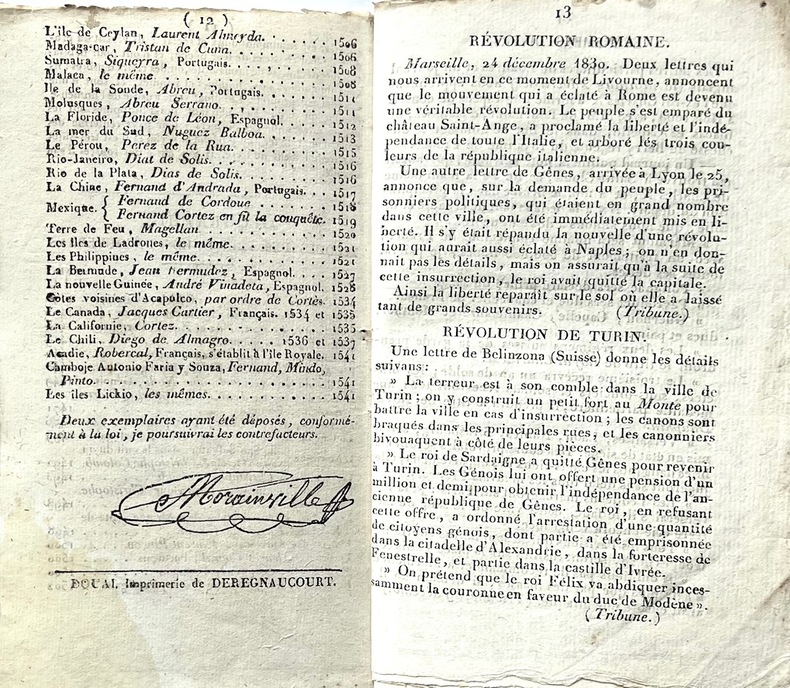 ( 12 )
L'île de Ceylan, Laurent Almeyda. . . . . . . 1506
Madagascar, Tristan de Cuna. . . . . . . . 1506
Sumatra, Siqueyra, Portugais. . . . . . . . 1508
Malaca, le même. . . . . . . . . . . . 1508
Ile de la Sonde, Abreu, Portugais. . . . . . . 1511
Molusques, Abreu Serrano. . . . . . . . . 1511
La Floride, Ponce de Léon, Espagnol. . . . . . 1512
La mer du Sud, Nuguez Balboa. . . . . . . 1513
Le Pérou, Perez de la Rua. . . . . . . . . 1515
Rio-Janeiro, Diat de Solis. . . . . . . . . 1516
Rio de la Plata, Dias de Solis. . . . . . . . 1516
La Chine, Fernand d'Andrada, Portugais. . . . . 1517
Mexique. { Fernand de Cordoue . . . . . . . 1518
Fernand Cortez en fit la couquête. 1519
Terre de Feu, Magellan . . . . . . . . . 1520
Les Iles de Ladrones, le même. . . . . . . . 1521
Les Philippines, le même. . . . . . . . . 1521
La Bermude, Jean Bermudez, Espagnol. . . . . 1527
La nouvelle Guinée, André Vinadeta, Espagnol. 1528
Côtes voisines d'Acapolco, par ordre de Cortès. 1534
Le Canada, Jacques Cartier, Français. 1534 et 1535
La Californie, Cortez. . . . . . . . . . 1535
Le Chili, Diego de Almagro. . . . 1536 et 1537
Acadie, Robercal, Français, s'établit à l'île Royale. 1541
Camboje Antonio Faria y Souza, Fernand, Mindo,
Pinto. . . . . . . . . . . . . . . 1541
Les îles Lickio, les mêmes. . . . . . . . . 1541
Deux exemplaires ayant été déposés, conformé-
ment à la loi, je poursuivrai les contrefacteurs.
Morainville
DOUAI, Imprimerie de DEREGNAUCOURT.
13
RÉVOLUTION ROMAINE.
Marseille, 24 décembre 1830. Deux lettres qui
nous arrivent en ce moment de Livourne, annoncent
que le mouvement qui a éclaté à Rome est devenu
une véritable révolution. Le peuple s'est emparé du
château Saint-Ange, a proclamé la liberté et l'indé-
pendance de toute l'Italie, et arboré les trois cou-
leurs de la république italienne.
Une autre lettre de Gênes, arrivée à Lyon le 25,
annonce que, sur la demande du peuple, les pri-
sonniers politiques, qui étaient en grand nombre
dans cette ville, ont été immédiatement mis en li-
berté. Il s'y était répandu la nouvelle d'une révolu-
tion qui aurait aussi éclaté à Naples; on n'en don-
nait pas les détails, mais on assurait qu'à la suite de
cette insurrection, le roi avait quitté la capitale.
Ainsi la liberté reparaît sur le sol où elle a laissé
tant de grands souvenirs. (Tribune.)
RÉVOLUTION DE TURIN.
Une lettre de Belinzona (Suisse) donne les détails
suivans:
» La terreur est à son comble dans la ville de
Turin; on y construit un petit fort au Monte pour
battre la ville en cas d'insurrection; les canons sont
braqués dans les principales rues, et les canonniers
bivouaquent à côté de leurs pièces.
» Le roi de Sardaigne a quitté Gênes pour revenir
à Turin. Les Génois lui ont offert une pension d'un
million et demi pour obtenir l'indépendance de l'an-
cienne république de Gênes. Le roi, en refusant
cette offre, a ordonné l'arrestation d'une quantité
de citoyens génois, dont partie a été emprisonnée
dans la citadelle d'Alexandrie, dans la forteresse de
Fenestrelle, et partie dans la castille d'Ivrée.
» On prétend que le roi Félix va abdiquer inces-
samment la couronne en faveur du duc de Modène ».
(Tribune.)